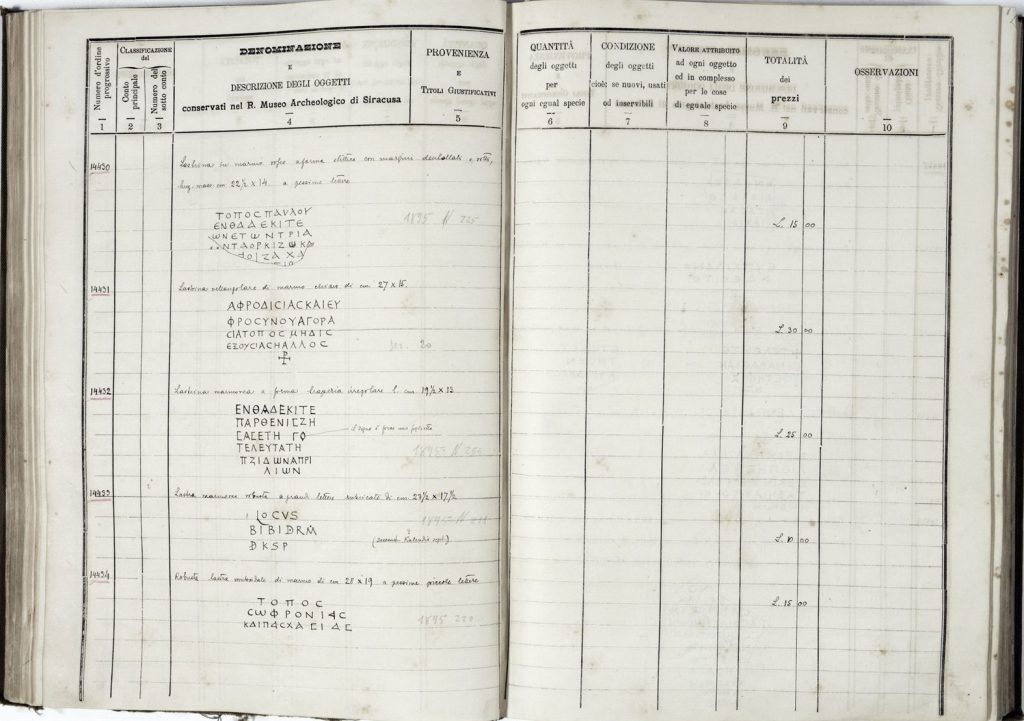 Numero d'ordine progressivo
CLASSIFICAZIONE del
Conto principale
Numero del sotto conto
DENOMINAZIONE
E
DESCRIZIONE DEGLI OGGETTI
conservati nel R. Museo Archeologico di Siracusa
PROVENIENZA
E
TITOLI GIUSTIFICATIVI
1 2 3 4 5
QUANTITÀ
degli oggetti
per
ogni egual specie
6
CONDIZIONE
degli oggetti
cioè: se nuovi, usati
od inservibili
7
VALORE ATTRIBUITO
ad ogni oggetto
od in complesso
per le cose
di eguale specie
8
TOTALITÀ
dei
prezzi
9
OSSERVAZIONI
10
14430
Lastrina di marmo a forma con margini e rotti,
22½ x 14. a pessime lettere
ΤΟΠΟCΠΑΥΛΟΥ
ΕΝΘΑΔΕΚΙΤΕ
ωΝΕΤωΝΤΡΙΑ
ΝΤΑΟΡΚΙΖωΚΑ
1895 N 225
L. 15 00
14431
Lastrina di marmo di cm. 27 x 15.
ΑΦΡΟΔΙCΙΑCΚΑΙΕΥ
ΦΡΟCΥΝΟΥΑΓΟΡΑ
CΙΑΤΟΠΟCΜΗΔΙC
ΕΞΟΥCΙΑCΗΑΛΛΟC
20
L. 30 00
14432
Lastrina marmorea a forma irregolare cm 19½ x 13
ΕΝΘΑΔΕΚΙΤΕ
ΠΑΡΘΕΝΙCΖΗ
CΑCΕΤΗ ΓΟ
il segno è forse una
ΤΕΛΕΥΤΑΤΗ
ΠΖΙΔωΝΑΠΡΙ
ΛΙωΝ
1895 N
L. 25 00
14433
Lastra marmorea robusta a grandi lettere rubricate di cm 23½ x 17½
LOCVS
BIBIDRM
DKSP
L. 10 00
14434
Robusta lastra di marmo di cm 28 x 19 a pessime piccole lettere
ΤΟΠΟC
CωΦΡΟΝΙΑC
ΚΑΙΠΑCΧΑCΙΑC
1895 220
L. 15 00